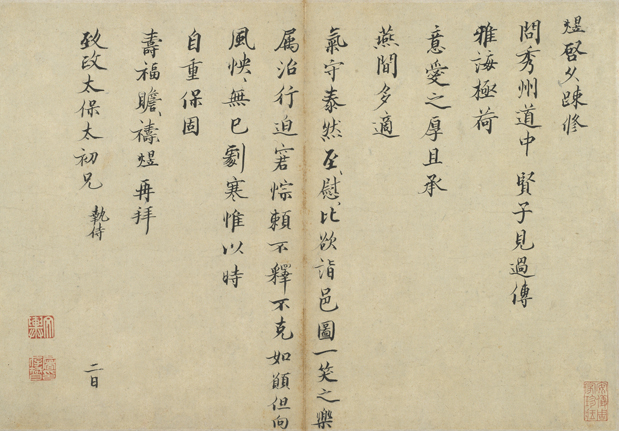 煜啓久疎修
問秀州道中 賢子見過傳
雅誨極荷
意愛之厚且承
燕閒多適
氣守泰然至慰比欲詣邑圖一笑之樂
属治行迫窘悰頼不釋不克如願但向
風怏〻無已劇寒惟以時
自重保固
壽福瞻禱煜再拜
致政太保太初兄 執侍
二日